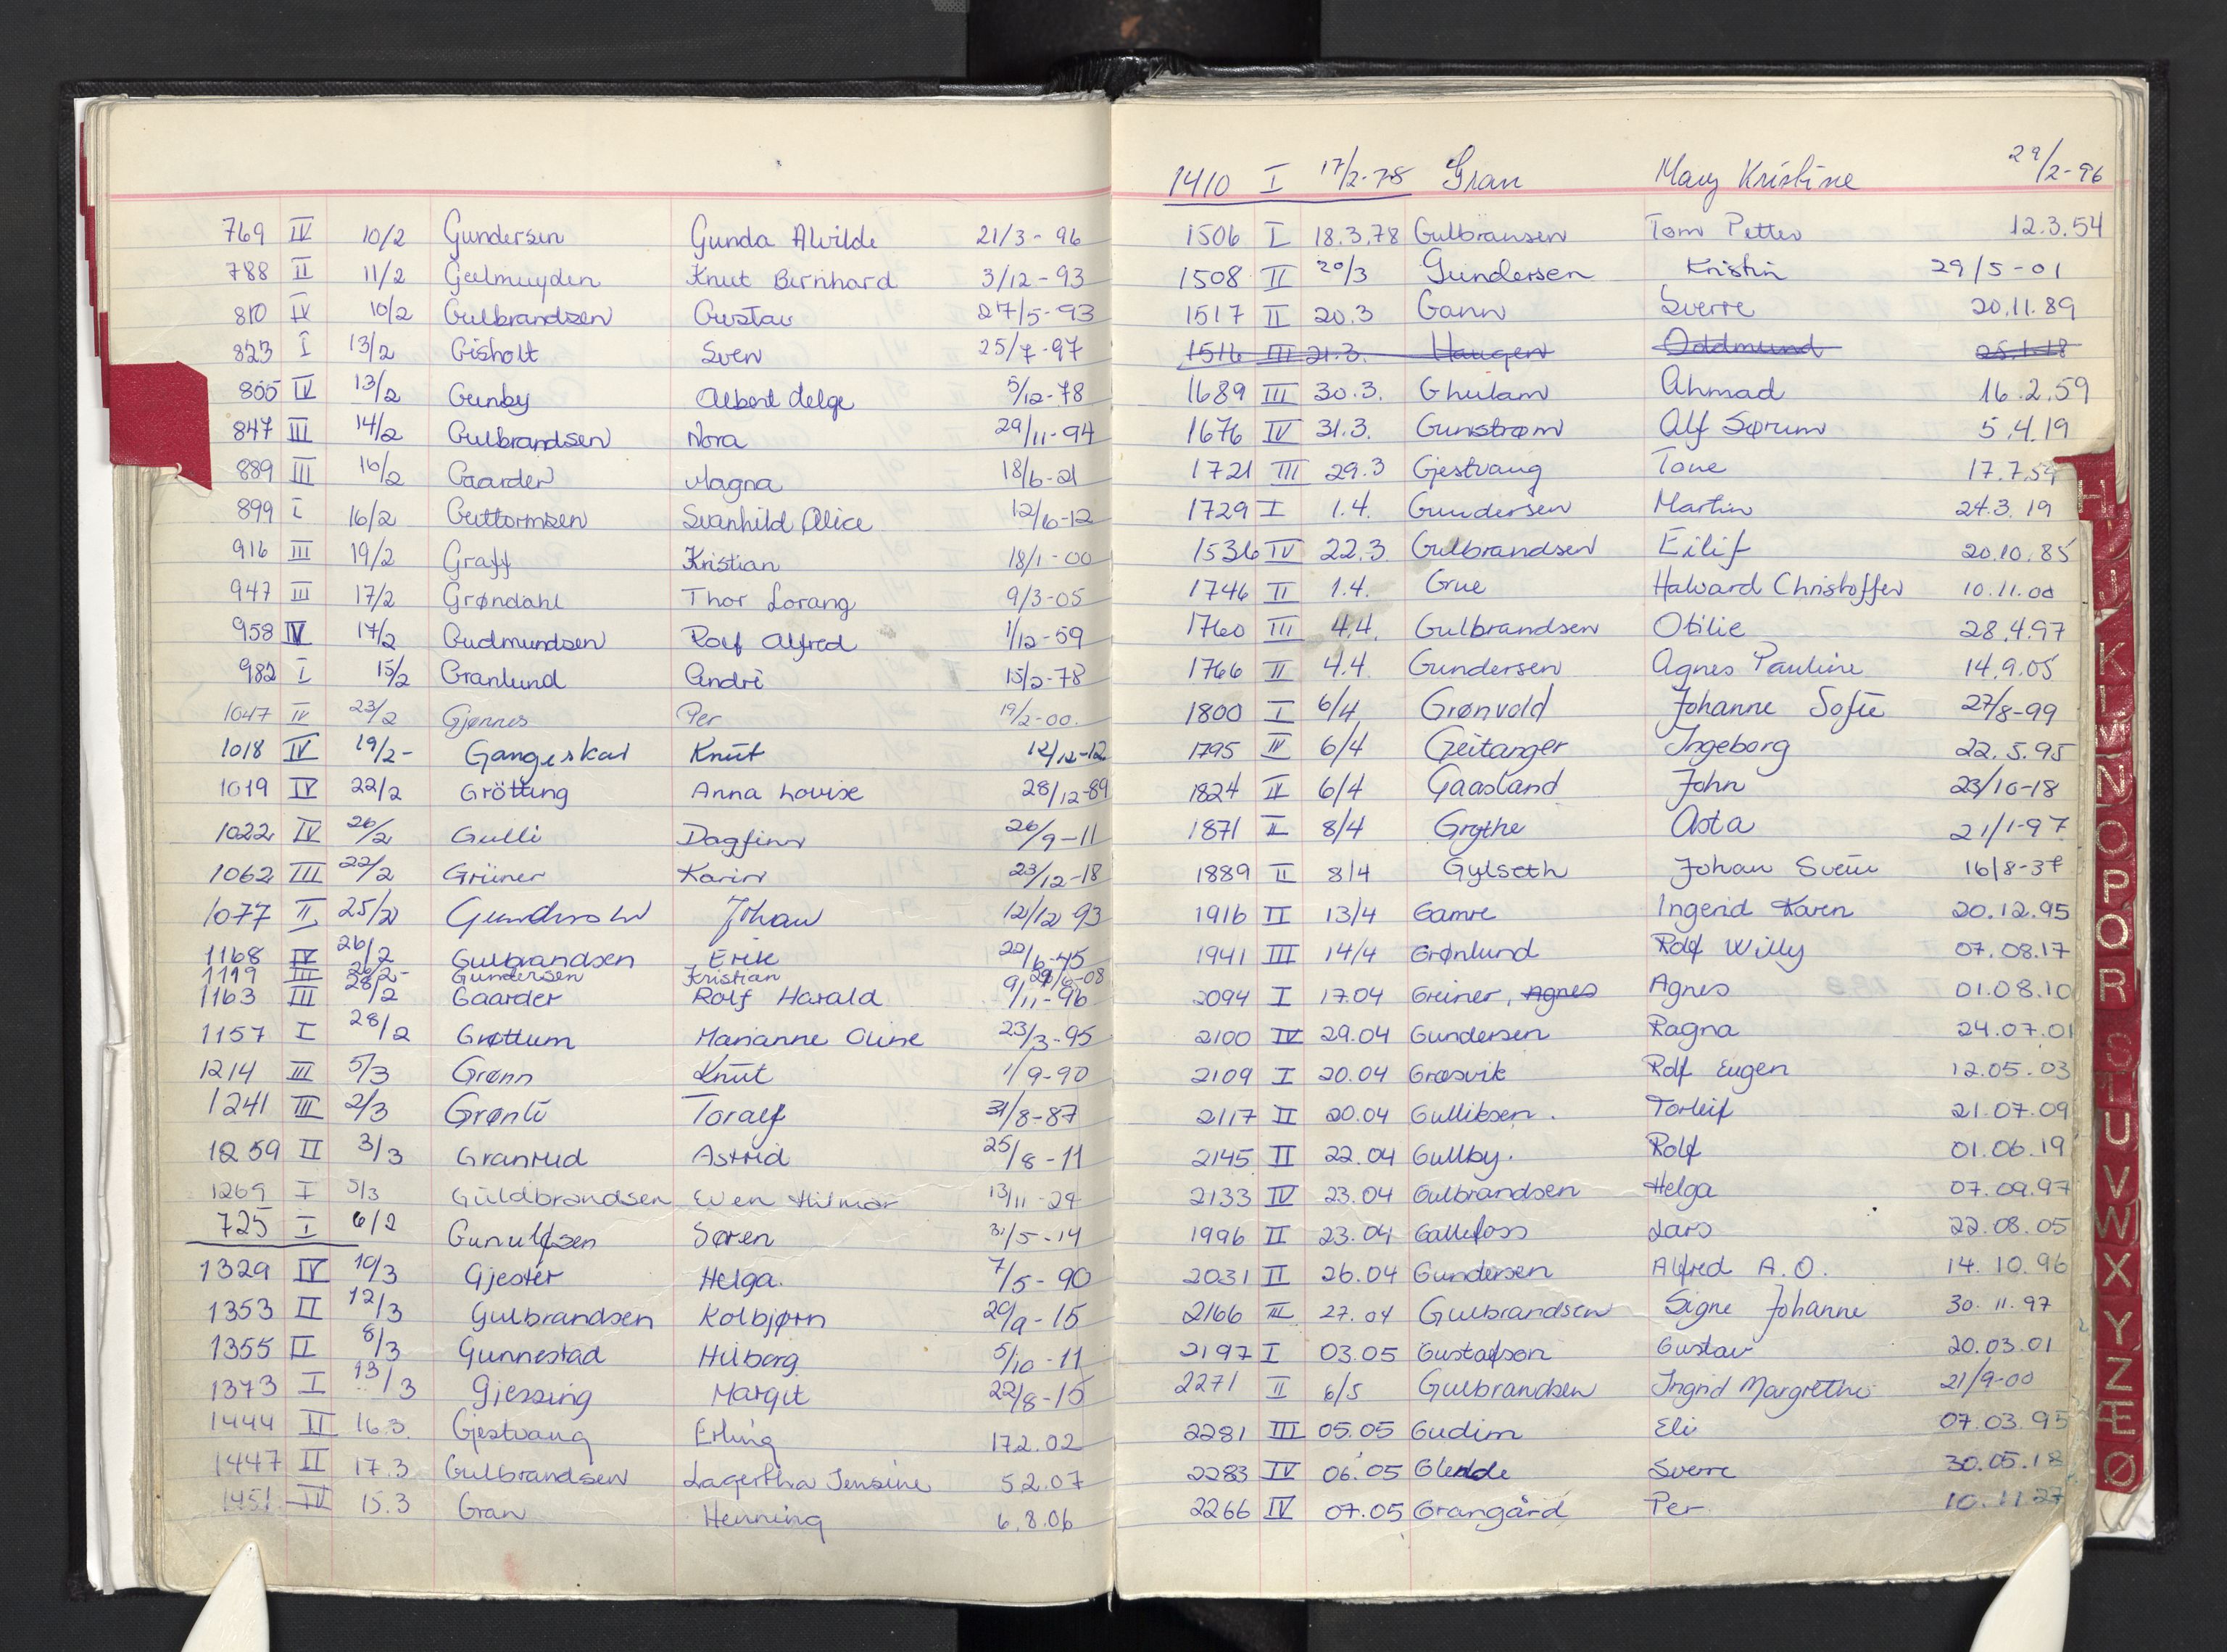 769 IV 10/2 Gundersen Gunda Alvilde 21/3-96
788 II 11/2 Geelmuyden Knut Bernhard 3/12-93
810 IV 10/2 Gulbrandsen Gustav 27/5-93
823 I 13/2 Gisholt Sven 25/7-97
855 IV 13/2 Gunby Albert Helge 5/12-78
847 III 14/2 Gulbrandsen Nora 29/11-94
889 III 16/2 Gaarder Magna 18/6-21
899 I 16/2 Guttormsen Svanhild Alice 12/6-12
916 III 19/2 Graff Kristian 18/1-00
947 III 17/2 Grøndahl Thor Lorang 9/3-05
958 IV 17/2 Gudmundsen Rolf Alfred 1/12-59
982 I 15/2 Granlund André 15/2-78
1047 IV 23/2 Gjønnes Per 19/2-00.
1018 IV 19/2- Gangeskar Knut 12/12-12
1019 IV 22/2 Grötting Anna Lovise 28/12-89
1022 IV 26/2 Gulli Dagfinn 26/9-11
1062 III 22/2 Grüner Karin 23/12-18
1077 II 25/2 Gundersen Johan 12/12 93
1168 IV 26/2 Gulbrandsen Erik 22/6-45
1119 III 26/2- Gundersen Kristian 29/6-08
1163 III 28/2 Gaarder Rolf Harald 9/11-96
1157 I 28/2 Grøttum Marianne Oline 23/3-95
1214 III 5/3 Grønn Knut 1/9-90
1241 III 2/3 Grønli Toralf 31/8-87
1259 II 3/3 Granrud Astrid 25/8-11
1269 I 5/3 Guldbrandsen Even Hilmar 13/11-24
725 I 6/2 Gunulfsen Søren 31/5-14
1329 IV 10/3 Gjester Helga. 7/5-90
1353 II 12/3 Gulbrandsen Kolbjørn 29/9-15
1355 II 8/3 Gunnestad Hilborg 5/10-11
1373 I 13/3 Gjessing Margit 22/8-15
1444 II 16.3. Gjestvang Erling 17.2.02
1447 II 17.3 Gulbrandsen Lagertha Jensine 5.2.07
1451 IV 15.3 Gran Henning 6.8.06
1410 I 17/2-78 Gran Mary Kristine 29/2-96
1506 I 18.3.78 Gulbransen Tom Petter 12.3.54
1508 II 20/3 Gundersen Kristin 29/5-01
1517 II 20.3 Gann Sverre 20.11.89
1516 III 21.3. Haugen Oddmund 25.1.18
1689 III 30.3. Ghulam Ahmad 16.2.59
1676 IV 31.3. Gunstrøm Alf Sørum 5.4.19
1721 III 29.3 Gjestvang Tone 17.7.59
1729 I 1.4. Gundersen Martin 24.3.19
1536 IV 22.3 Gulbrandsen Eilif 20.10.85
1746 II 1.4. Grue Halvard Christoffer 10.11.00
1760 III 4.4. Gulbrandsen Otilie 28.4.97
1766 II 4.4. Gundersen Agnes Pauline 14.9.05
1800 I 6/4 Grønvold Johanne Sofie 27/8-99
1795 IV 6/4 Geitanger Ingeborg 22.5.95
1824 IV 6/4 Gaasland John 23/10-18
1871 II 8/4 Grythe Asta 21/1-97
1889 II 8/4 Gylseth Johan Svein 16/8-37
1916 II 13/4 Gamre Ingerid Karen 20.12.95
1941 III 14/4 Grønlund Rolf Willy 07.08.17
2094 I 17.04 Greiner, Agnes Agnes 01.08.10
2100 IV 29.04 Gundersen Ragna 24.07.01
2109 I 20.04 Grøsvik Rolf Eugen 12.05.03
2117 II 20.04 Gulliksen. Torleif 21.07.09
2145 II 22.04 Gullby. Rolf 01.06.19
2133 IV 23.04 Gulbrandsen Helga 07.09.97
1996 II 23.04 Gallefoss Lars 22.08.05
2031 II 26.04 Gundersen Alfred A.O. 14.10.96
2166 III 27.04 Gulbrandsen Signe Johanne 30.11.97
2197 I 03.05 Gustafson Gustav 20.03.01
2271 II 6/5 Gulbrandsen Ingrid Margrethe 21/9-00
2281 III 05.05 Gudim Eli 07.03.95
2283 IV 06.05 Glende Sverre 30.05.18
2266 IV 07.05 Grangård Per 10.11.27
H
J
K
L
M
N
O
P
Q
R
S
T
U
V
W
X
Y
Z
Æ
Ø